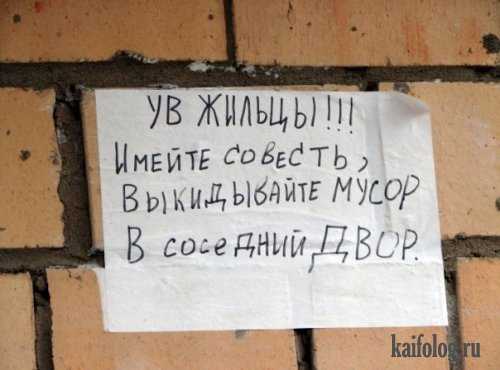 УВ ЖИЛЬЦЫ!!!
ИМЕЙТЕ СОВЕСТЬ,
ВЫКИДЫВАЙТЕ МУСОР
В СОСЕДНИЙ ДВОР.
kaifolog.ru